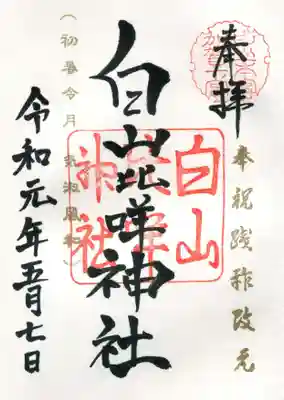 奉拝
奉祝踐祚改元
白山比咩神社
白山
比咩
神社
(初春令月 氣淑風和)
令和元年五月七日